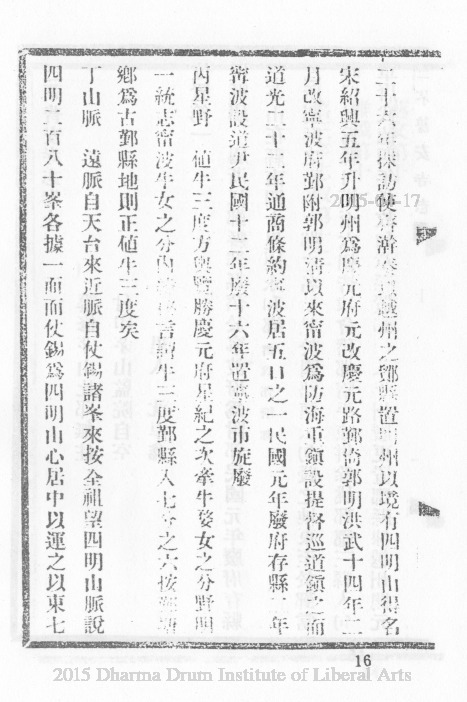 二十六年採訪使齊澣奏以越州之鄮縣置明州以境有四明山得名
宋紹興五年升明州爲慶元府元改慶元路鄞倚郭明洪武十四年二
月改寧波府鄞附郭明清以來甯波爲防海重鎮設提督巡道鎮之而
道光二十二年通商條約寧波居五口之一民國元年廢府存縣 年
甯波設道尹民國十二年廢十六年置寧波市旋廢
丙星野 値牛三度方輿勝慶元府星紀之次牽牛婺女之分野
一統志甯波牛女之分 言謂牛三度鄞縣入七 之六按
鄉爲古鄞縣地則正値牛三度矣
丁山脈 遠脈自天台來近脈自仗錫諸峯來按全祖望四明山脈說
四明二百八十峯各據一面而仗錫爲四明山心居中以運之以東七
2015- -17
16
2015 Dharma Drum Institute of Liberal Arts